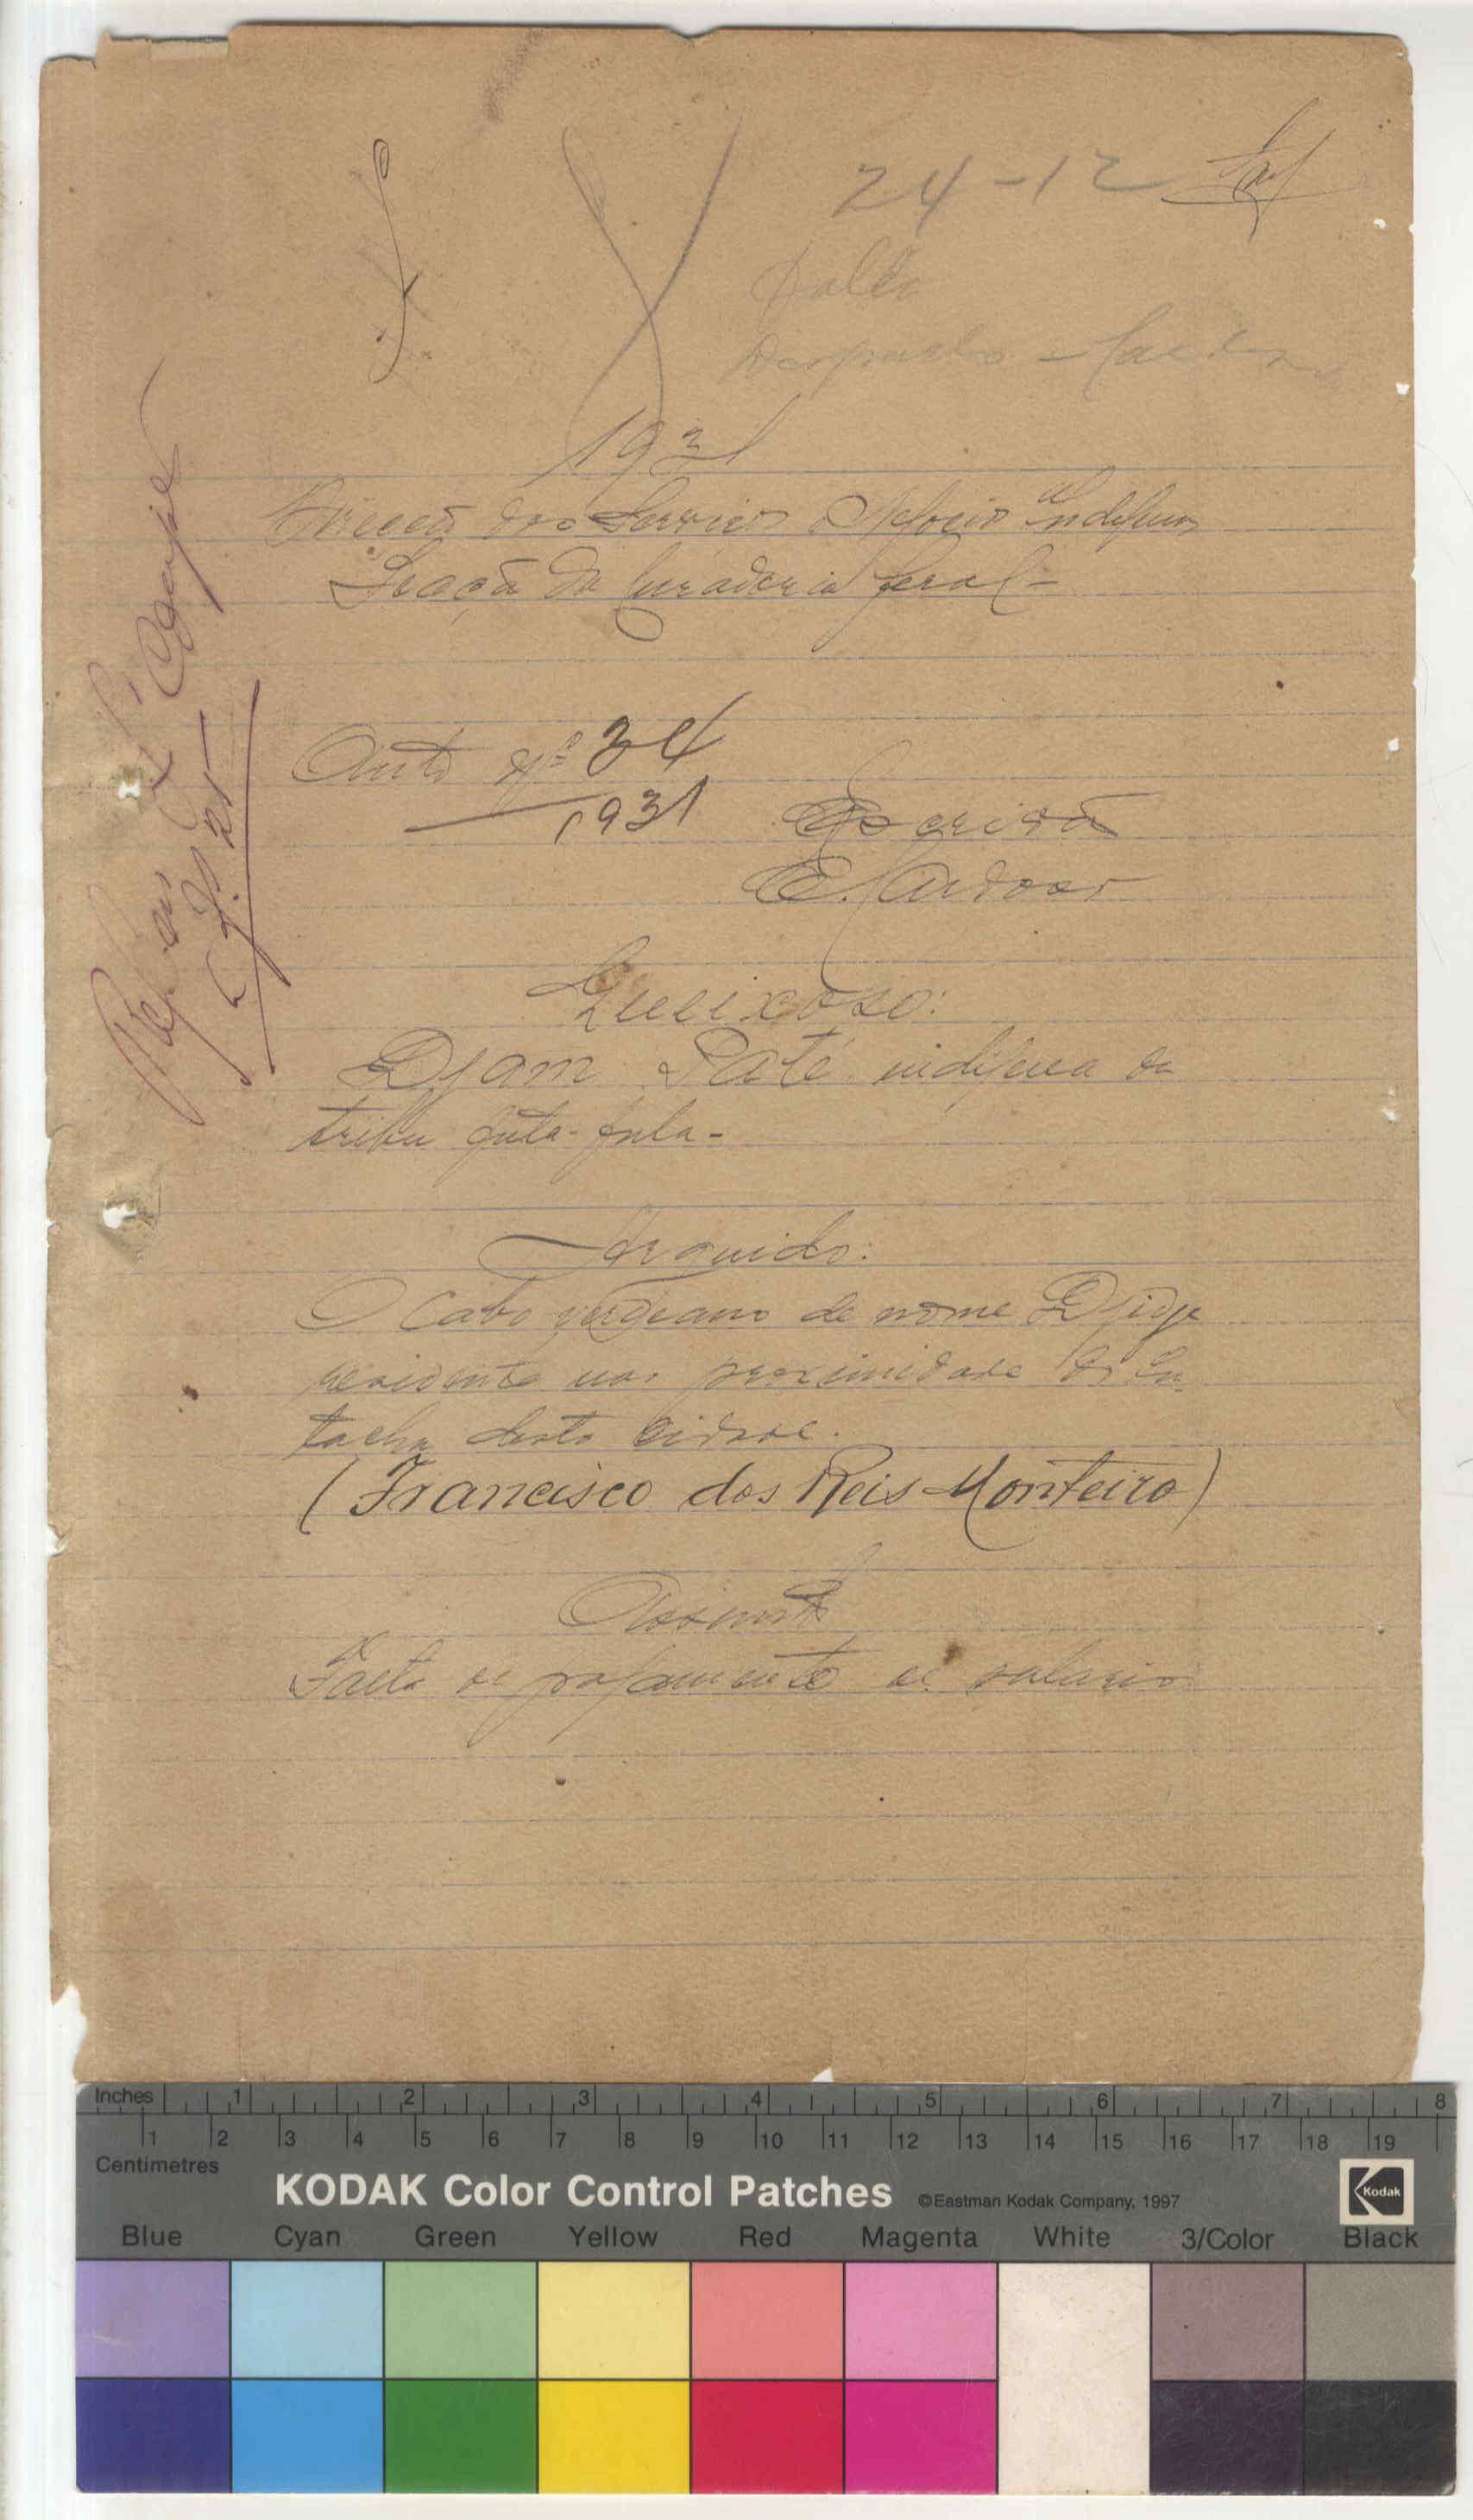 24-12
Falta
Despacho
1931
Direcçã dos Serviços e Negocios Indigenas
Secçã da Curadoria Geral-
Auto Nº 34
1931
Escrivã
E. Cardoso
Queixoso:
Djam Paté indigena da
tribu futa-fula-
Arguido:
O Cabo verdeano de nome Djidje
residente nas proximidade
desta cidade.
(Francisco dos Reis Monteiro)
Assunto
Falta de pagamento de salario
Inches 1 2 3 4 5 6 7 8
1 2 3 4 5 6 7 8 9 10 11 12 13 14 15 16 17 18 19
Centimetres
KODAK Color Control Patches ©Eastman Kodak Company, 1997 Kodak
Blue Cyan Green Yellow Red Magenta White 3/Color Black